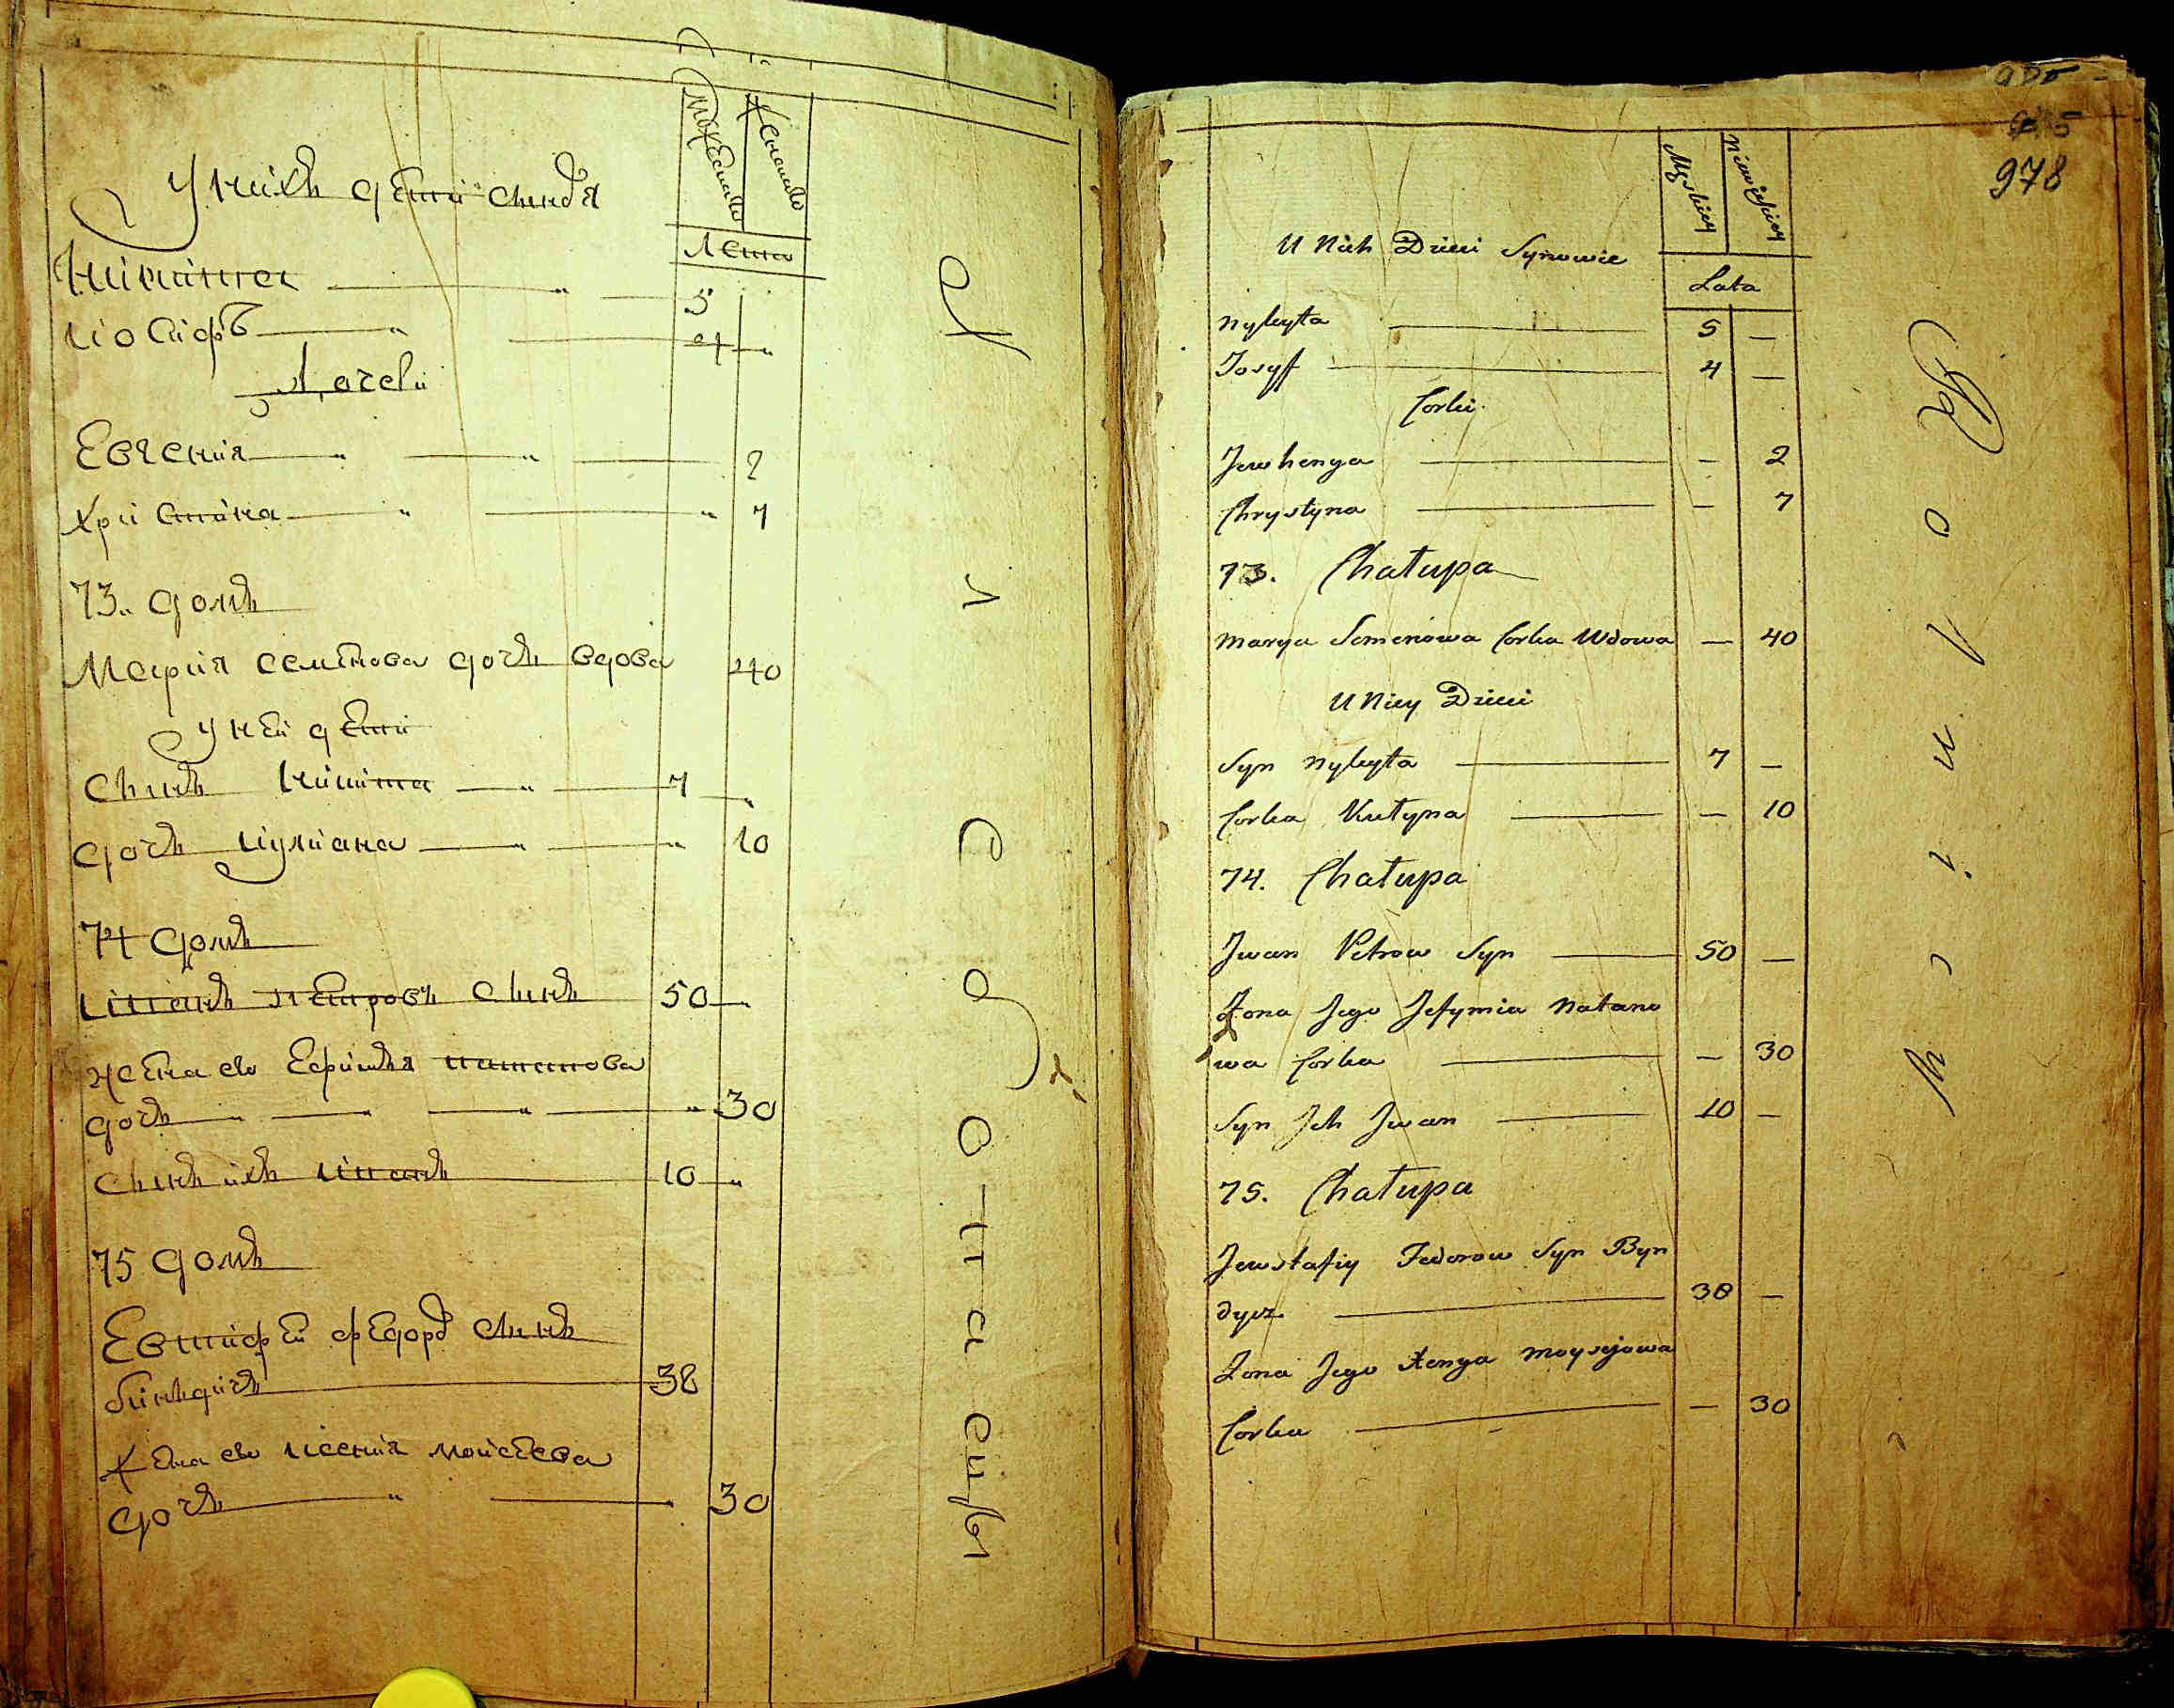 Мужеска
Женска
Лета
У нихъ дети сыновя
Никита 5
Иосифъ 4
Дочери
Евгения 2
Христина 7
73. домъ
Мария семенова дочь вдова 40
У ней дети
Сынъ Никита 7
дочь Иулиана 10
74 домъ
Иванъ Петровъ Сынъ 50
жена ево Ефимия натанова
дочь 30
Сынъ ихъ Иванъ 10
75 домъ
Евстафей федоровъ Сынъ
бындичъ 38
Жена ево Ксения мойсеева
дочь 30
978
Męskiey
Niewieskiey
Lata
U Nich Dzieci Synowie
Nykyta 5 —
Josyff 4 —
Corki
Jewhenya — 2
Chrystyna — 7
73. Chałupa
Marya Semenowa Corka Wdowa — 40
U Niey Dzieci
Syn Nykyta 7 —
Corka — 10
74. Chałupa
Jwan Petrow Syn 50 —
Zona Jego Jefymia Natano
wa Corka — 30
Syn Jch Jwan 10 —
75. Chałupa
Jewstafiy Fedorow Syn Byn
dycz 38 —
Zona Jego Xenya Moysejowa
Corka — 30